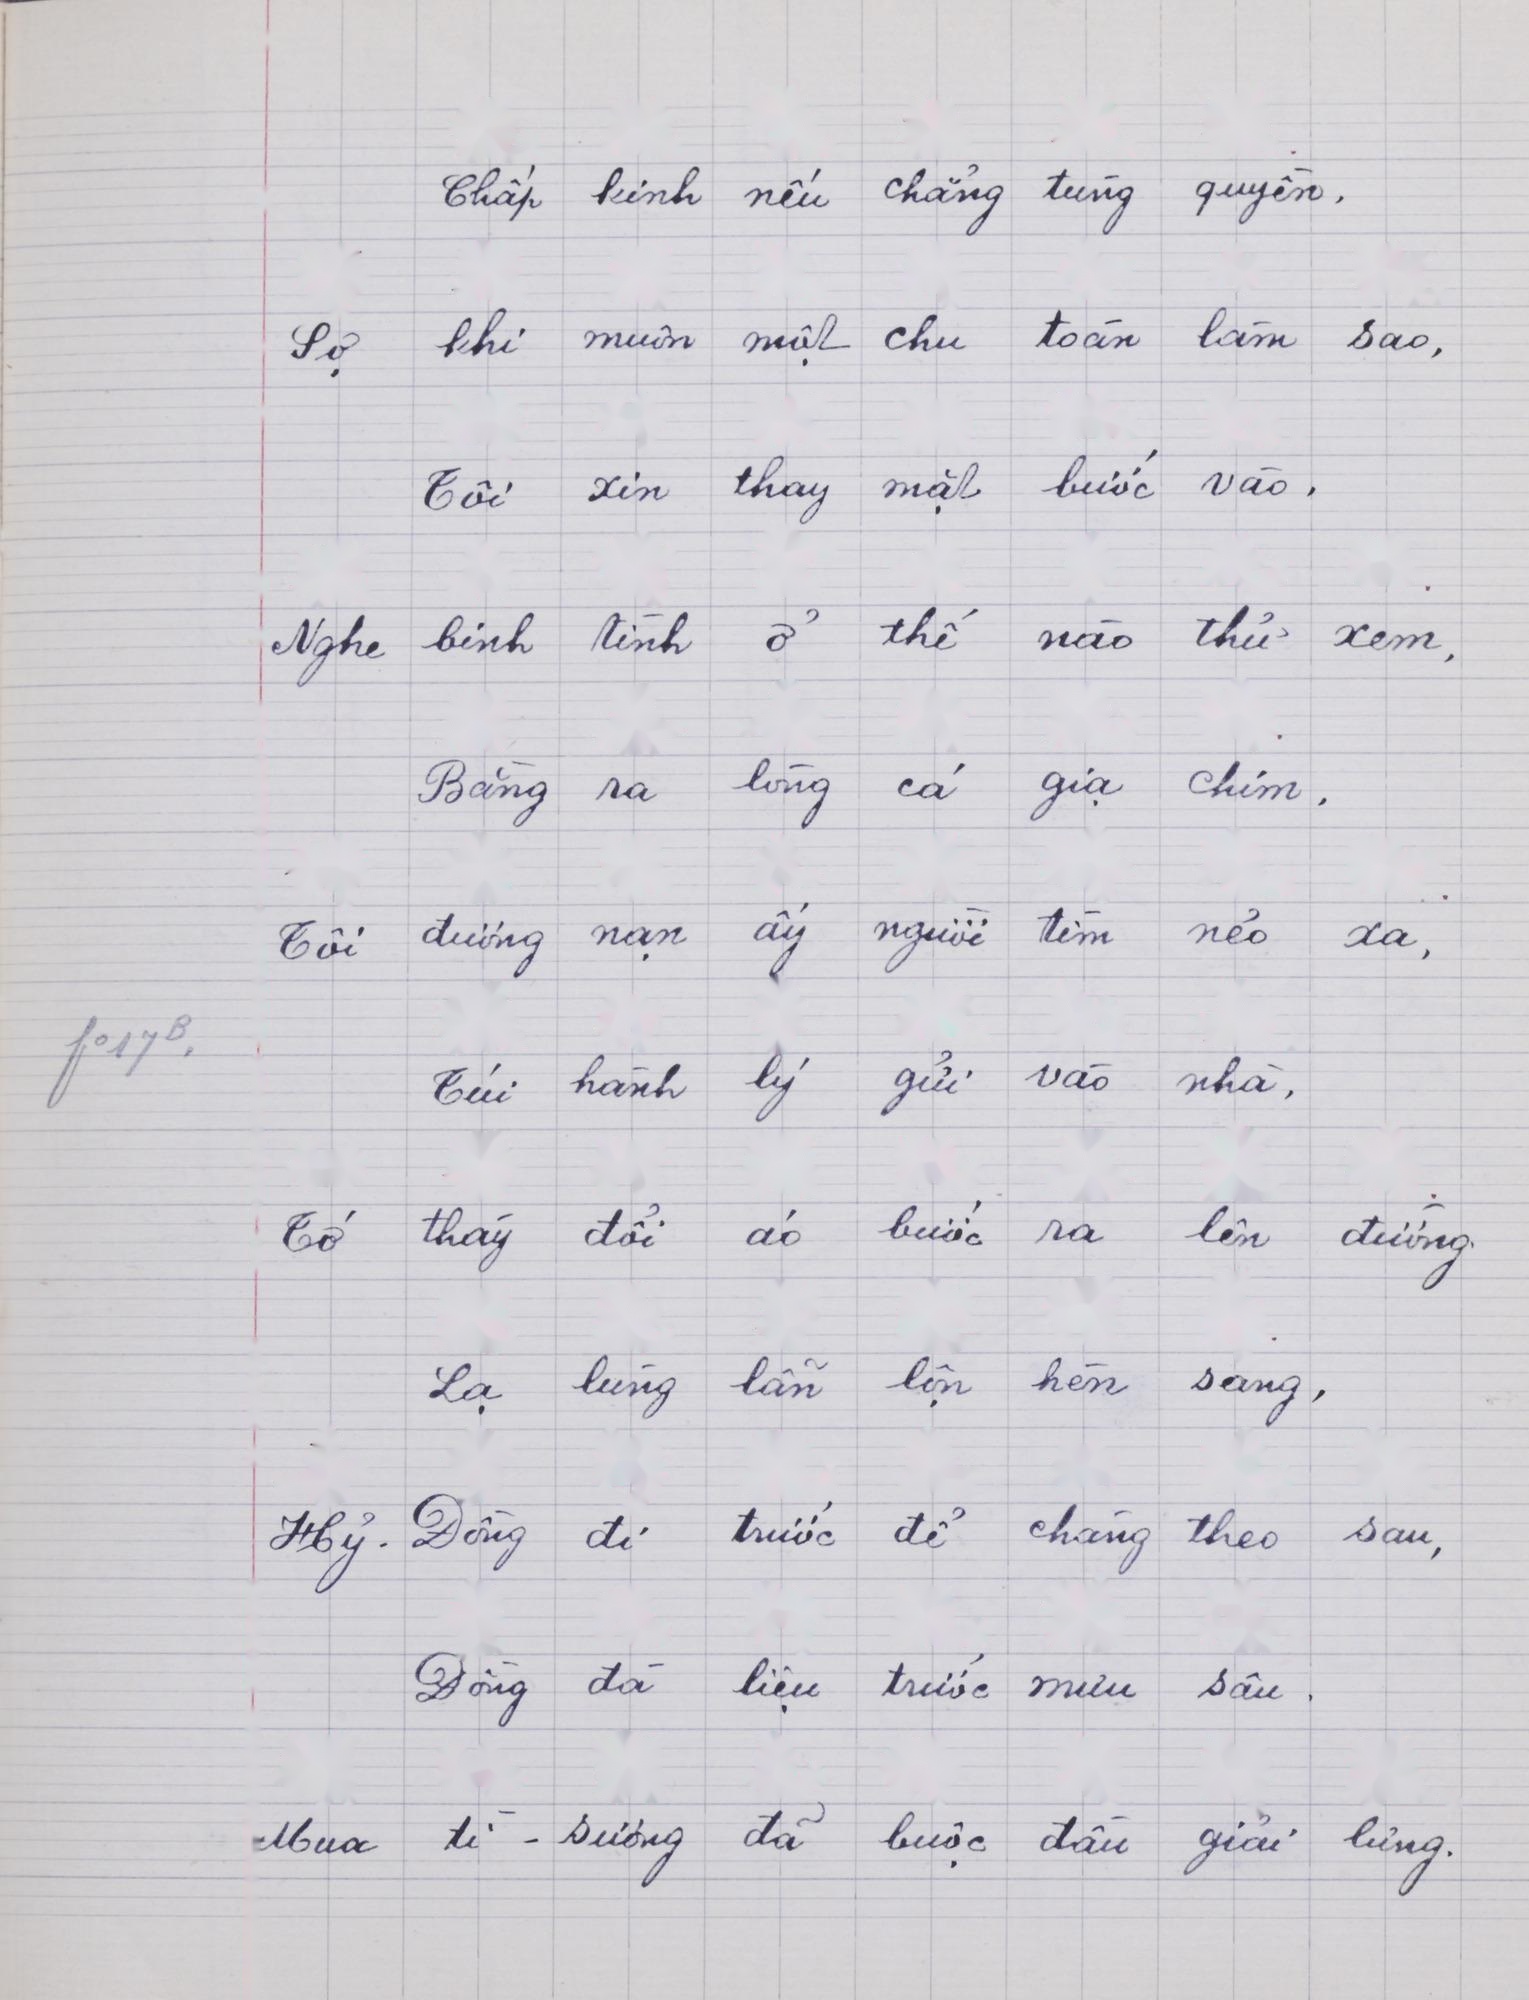 Chấp kinh nếu chẳng tùng quyền,
Sợ khi muôn một chu toàn làm sao,
Tôi xin thay mặt bước vào,
Nghe binh tình ở thế nào thử xem,
Bằng ra lồng cá giạ chim,
Tôi đương nạn ấy người tìm nẻo xa,
fº17B.
Túi hành lý gửi vào nhà,
Tớ thầy đổi áo bước ra lên đường.
Lạ lùng lẫn lộn hèn sang,
Hỷ. Đồng đi trước để chàng theo sau,
Đồng đà liệu trước mưu sâu.
Mua tì - sương đã buộc đầu giải lưng.